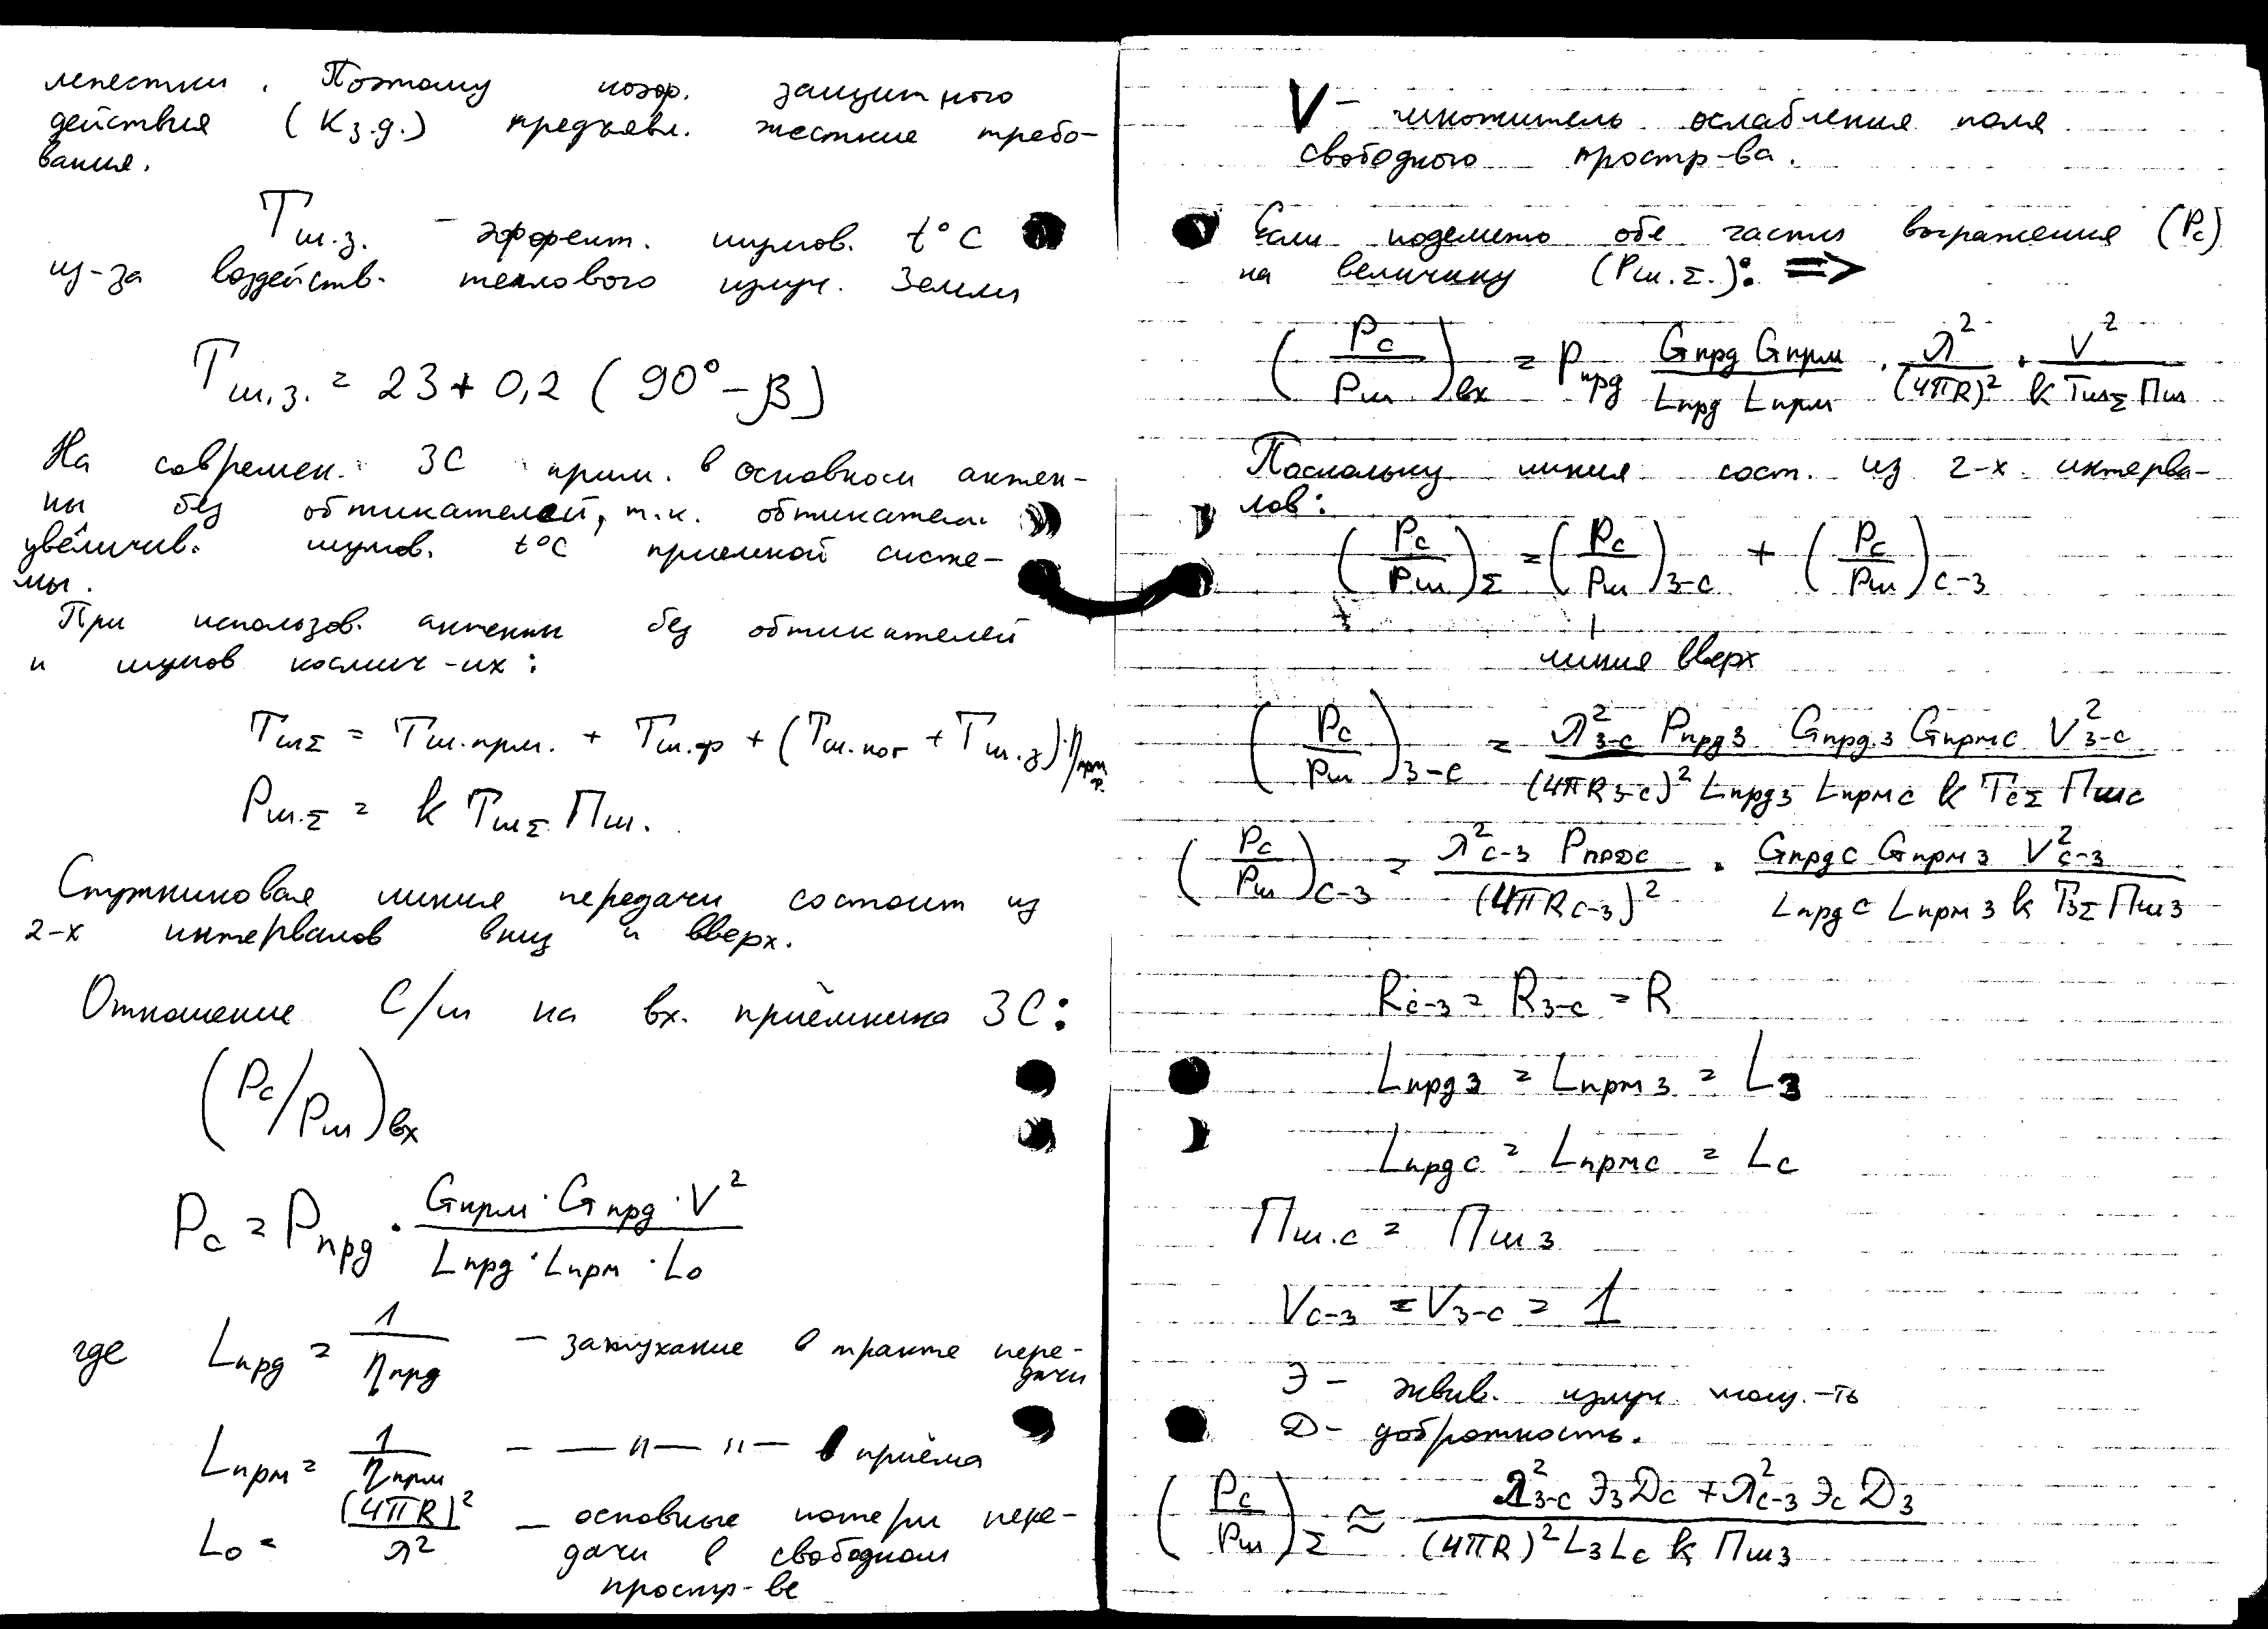 лепестки. Поэтому коэф. защитного
действия (Кз.д.) предъявл. жесткие требо-
вания.
Tш.з. – эффект. шумов. t°C
из-за воздейств. теплового излуч. Земли
Tш.з. = 23 + 0,2 (90° – β)
На современ. ЗС прим. в основном антен-
ны без обтикателей, т.к. обтикатели
увеличив. шумов. t°C приемной систе-
мы.
При использов. антенны без обтикателей
и шумов космич-их:
TшΣ = Tш.прм. + Tш.ф + (Tш.пог + Tш.з)·ηпрм ф.
Pш.Σ = k TшΣ Пш.
Спутниковая линия передачи состоит из
2-х интервалов вниз и вверх.
Отношение С/ш на вх. приёмника ЗС:
(Pс/Pш)вх
Pс = Pпрд · (Gпрм · Gпрд · V²) / (Lпрд · Lпрм · L₀)
где Lпрд = 1/ηпрд – затухание в тракте пере-
дачи
Lпрм = 1/ηпрм – —"— "— в приёма
L₀ = (4πR)²/λ² – основные потери пере-
дачи в свободном
простр-ве
V – множитель ослабления поля
свободного простр-ва.
Если поделить обе части выражения (Pс)
на величину (Pш.Σ.): =>
(Pс/Pш)вх = Pпрд (Gпрд Gпрм)/(Lпрд Lпрм) · λ²/(4πR)² · V²/(k TшΣ Пш)
Поскольку линия сост. из 2-х интерва-
лов:
(Pс/Pш)Σ = (Pс/Pш)з-с + (Pс/Pш)с-з
линия вверх
(Pс/Pш)з-с = (λ²з-с Pпрд з Gпрд.з Gпрм с V²з-с) / ((4πRз-с)² Lпрд з Lпрм с k TсΣ Пш с)
(Pс/Pш)с-з = (λ²с-з Pпрд с)/(4πRс-з)² · (Gпрд с Gпрм з V²с-з)/(Lпрд с Lпрм з k TзΣ Пш з)
Rс-з = Rз-с = R
Lпрд з = Lпрм з = Lз
Lпрд с = Lпрм с = Lс
Пш.с = Пш з
Vс-з = Vз-с = 1
Э – эквив. излуч. мощ.-ть
Д – добротность.
(Pс/Pш)Σ ≃ (λ²з-с Эз Дс + λ²с-з Эс Дз) / ((4πR)² Lз Lс k Пш з)